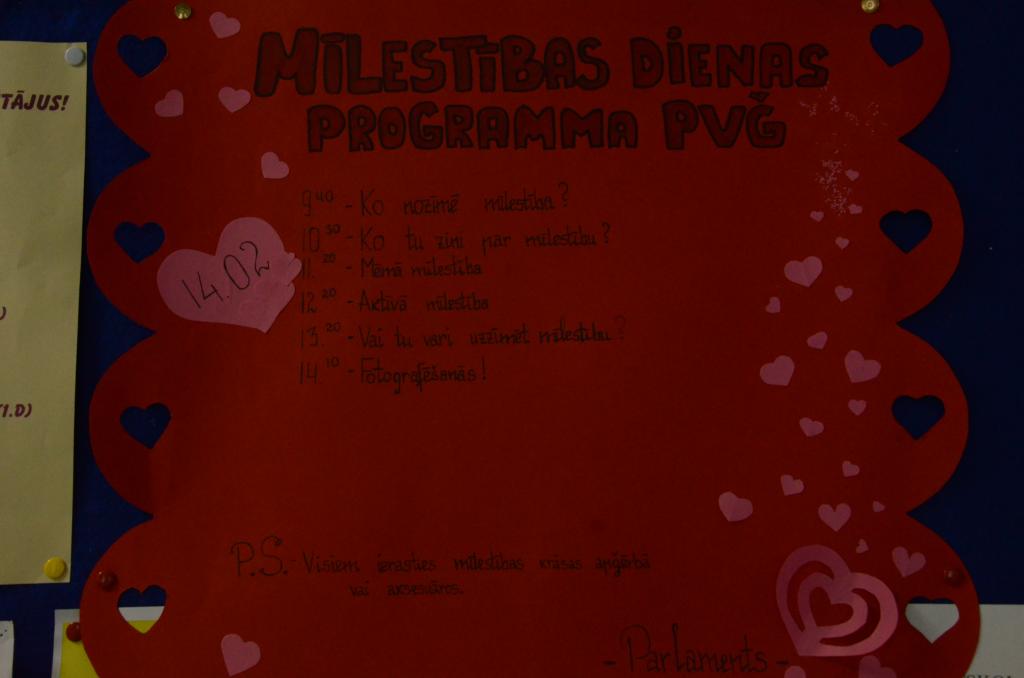 TĀJUS!
MĪLESTĪBAS DIENAS
PROGRAMMA PVĢ
14.02
9.40 - Ko nozīmē mīlestība?
10.30 - Ko tu zini par mīlestību?
11.20 - Mēmā mīlestība
12.20 - Aktīvā mīlestība
13.20 - Vai tu vari uzzīmēt mīlestību?
14.10 - Fotografēšanās!
1.D)
P.S. - Visiem ierasties mīlestības krāsas apģērbā
vai aksesuāros.
- Parlaments -